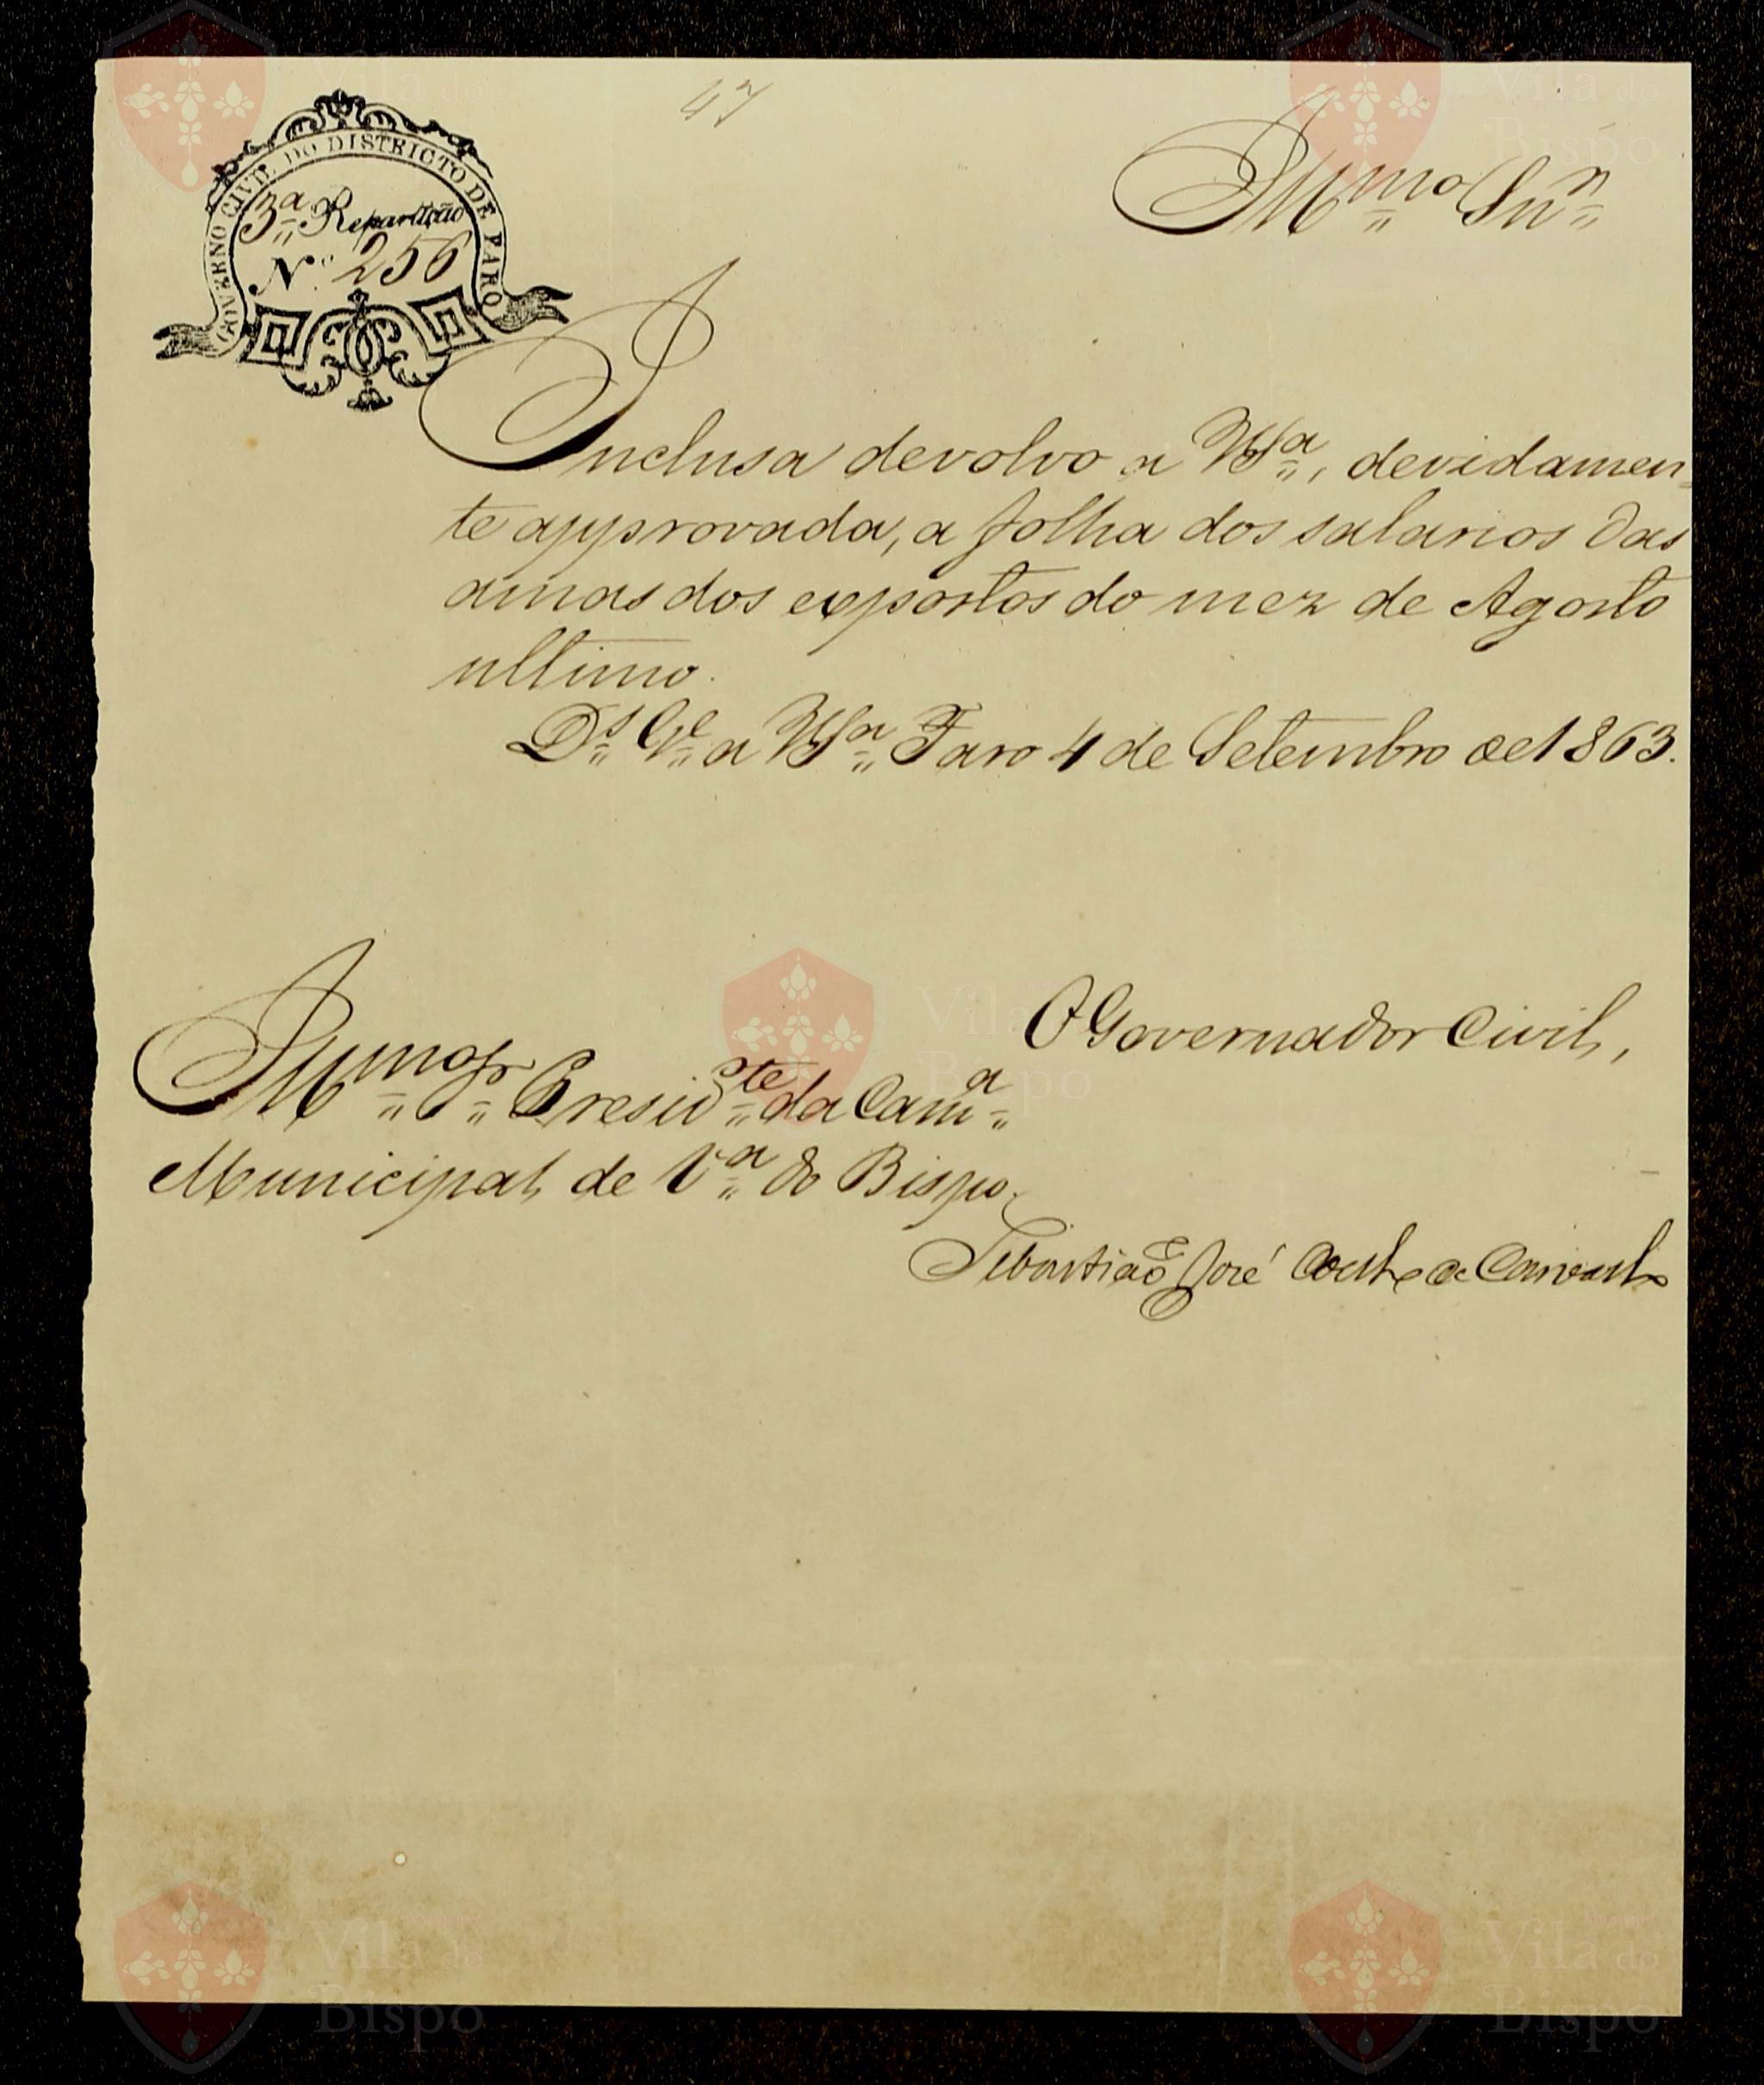 47
GOVERNO CIVIL DO DISTRICTO DE FARO
3ª Repartição
N.º 256
Illmo Snr
Inclusa devolvo a VSª, devidamen-
te approvada, a folha dos salarios das
amas dos expostos do mez de Agosto
ultimo.
Ds Ge a VSª Faro 4 de Setembro de 1863.
O Governador Civil,
Illmo Sr Presidte da Camª
Municipal de Vª do Bispo.
Sebastião José Coelho de Carvalho
Vila do
Bispo
Vila do
Bispo
Vila do
Bispo
Vila do
Bispo
Vila do
Bispo